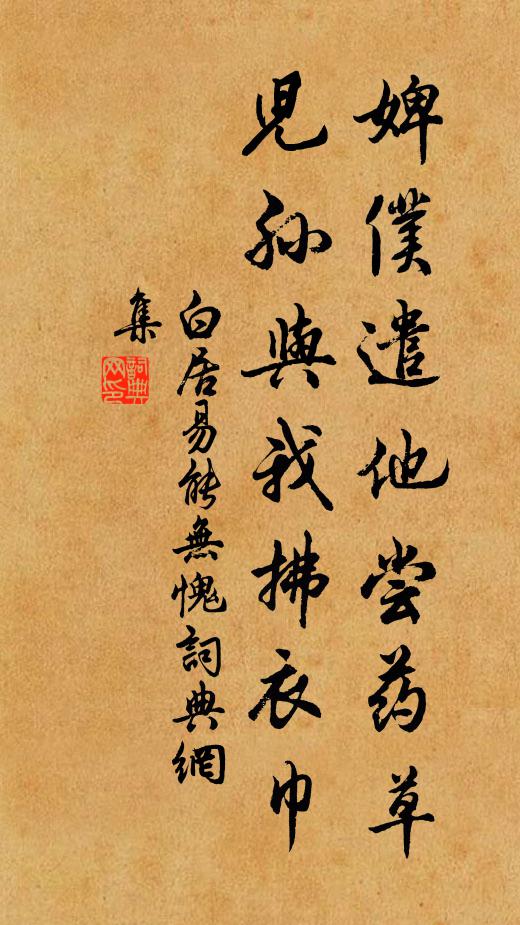 婢僕遣他尝药草
兒孫與我拂衣巾
白居易能無愧詞典網
集
詞典网印